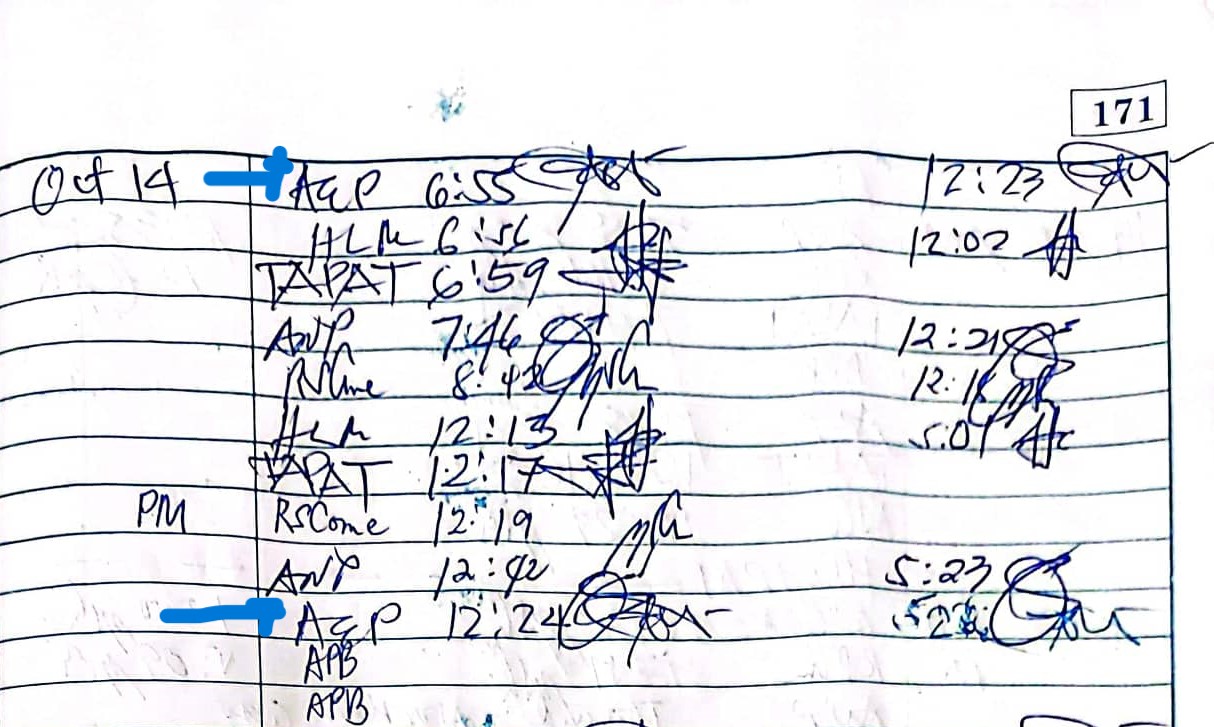 171
Oct 14 AEP 6:55 12:23
HLM 6:56 12:02
TAPAT 6:59
ANP 7:46 12:21
RSCome 8:42 12:18
HLM 12:13 5:01
TAPAT 12:17
PM RSCome 12:19
ANP 12:42 5:23
AEP 12:24
APB
APB